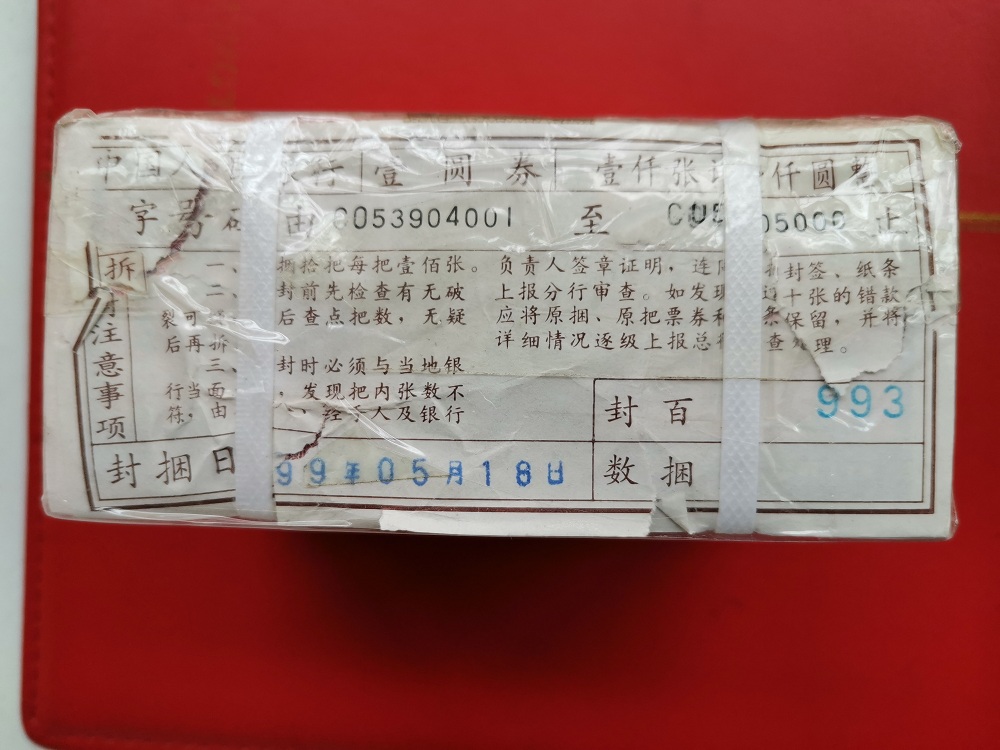 中国人 行 壹圆券 壹仟张 仟圆整
字号 由 C053904001 至 C05 05000 止
拆 注意事项
一、 捆拾把每把壹佰张。
二、 封前先检查有无破
裂可 后查点把数，无疑
后再拆
三、 封时必须与当地银
行当面 ，发现把内张数不
符，由 人，经 人及银行
负责人签章证明，连 封签、纸条
上报分行审查。如发现 十张的错款
应将原捆、原把票券和 条保留，并将
详细情况逐级上报总 查处理。
封百 993
封捆日 99年05月18日
数捆